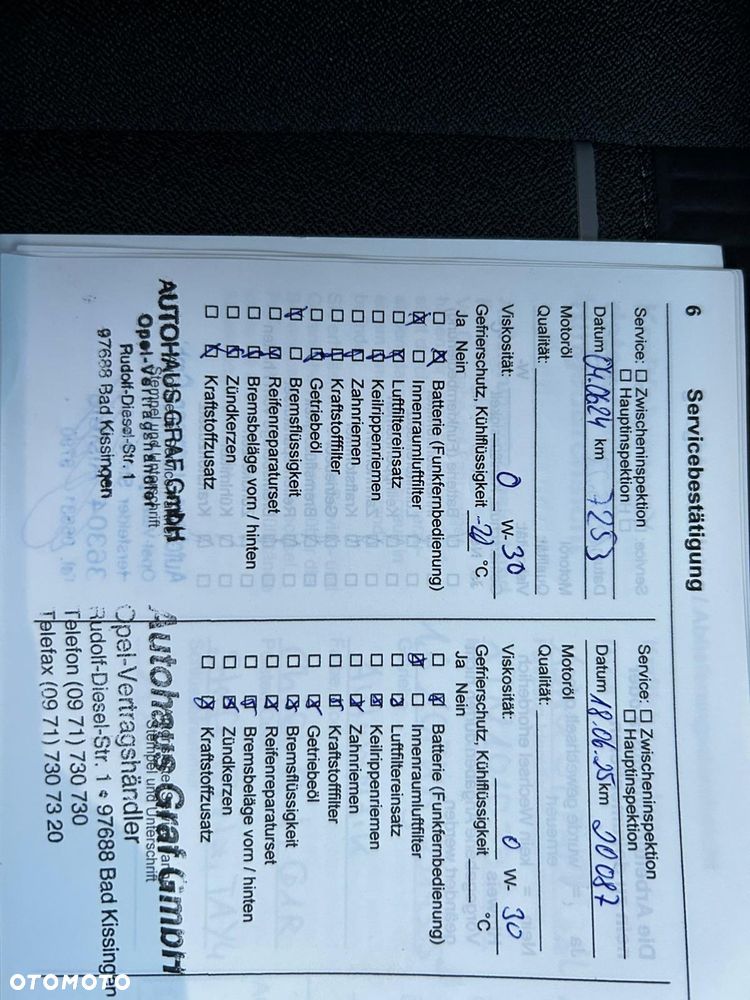 6 Servicebestätigung
Service: ☐ Zwischeninspektion
☐ Hauptinspektion
Datum 04.06.24 km 7253
Motoröl
Qualität:
Viskosität: 0 W- 30
Gefrierschutz, Kühlflüssigkeit -20 °C
Ja Nein
☐ ☒ Batterie (Funkfernbedienung)
☒ ☐ Innenraumluftfilter
☐ ☒ Luftfiltereinsatz
☐ ☒ Keilrippenriemen
☐ ☒ Zahnriemen
☐ ☒ Kraftstofffilter
☐ ☒ Getriebeöl
☒ ☐ Bremsflüssigkeit
☐ ☒ Reifenreparaturset
☐ ☒ Bremsbeläge vorn / hinten
☐ ☒ Zündkerzen
☐ ☒ Kraftstoffzusatz
Stempel und Unterschrift
AUTOHAUS GRAF GmbH
Opel-Vertragshändler
Rudolf-Diesel-Str. 1
97688 Bad Kissingen
Service: ☐ Zwischeninspektion
☐ Hauptinspektion
Datum 18.06.25 km 20087
Motoröl
Qualität:
Viskosität: 0 W- 30
Gefrierschutz, Kühlflüssigkeit °C
Ja Nein
☐ ☒ Batterie (Funkfernbedienung)
☒ ☐ Innenraumluftfilter
☐ ☒ Luftfiltereinsatz
☐ ☒ Keilrippenriemen
☐ ☒ Zahnriemen
☐ ☒ Kraftstofffilter
☐ ☒ Getriebeöl
☐ ☒ Bremsflüssigkeit
☐ ☒ Reifenreparaturset
☐ ☒ Bremsbeläge vorn / hinten
☐ ☒ Zündkerzen
☐ ☒ Kraftstoffzusatz
Stempel und Unterschrift
Autohaus Graf GmbH
Opel-Vertragshändler
Rudolf-Diesel-Str. 1 • 97688 Bad Kissingen
Telefon (09 71) 730 730
Telefax (09 71) 730 73 20
OTOMOTO